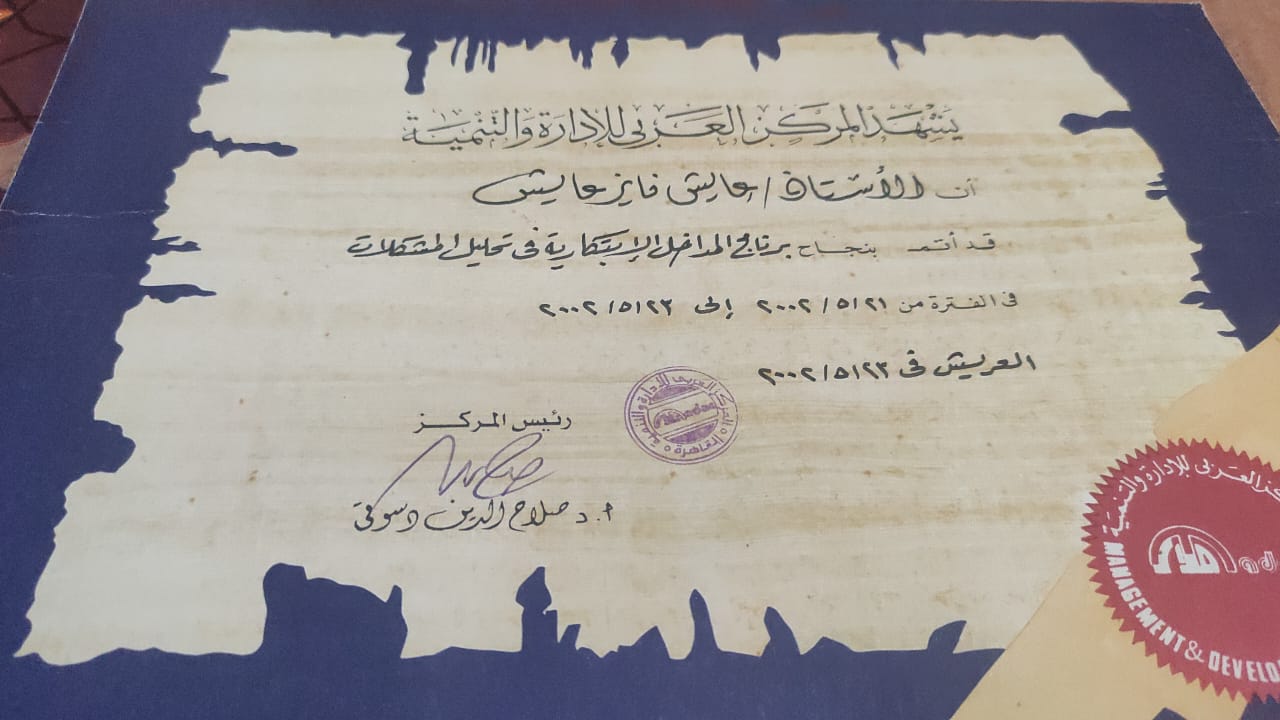 يشهد المركز العربي للإدارة والتنمية
أن الأستاذ / عايش فايز عايش
قد أتم بنجاح برنامج المداخل الإبتكارية فى تحليل المشكلات
فى الفترة من ٢٠٠٢/٥/٢١ إلى ٢٠٠٢/٥/٢٣
العريش فى ٢٠٠٢/٥/٢٣
رئيس المركز
أ.د صلاح الدين دسوقى
المركز العربى للإدارة والتنمية
القاهرة
العربى للإدارة والتنمية
MANAGEMENT & DEVELO